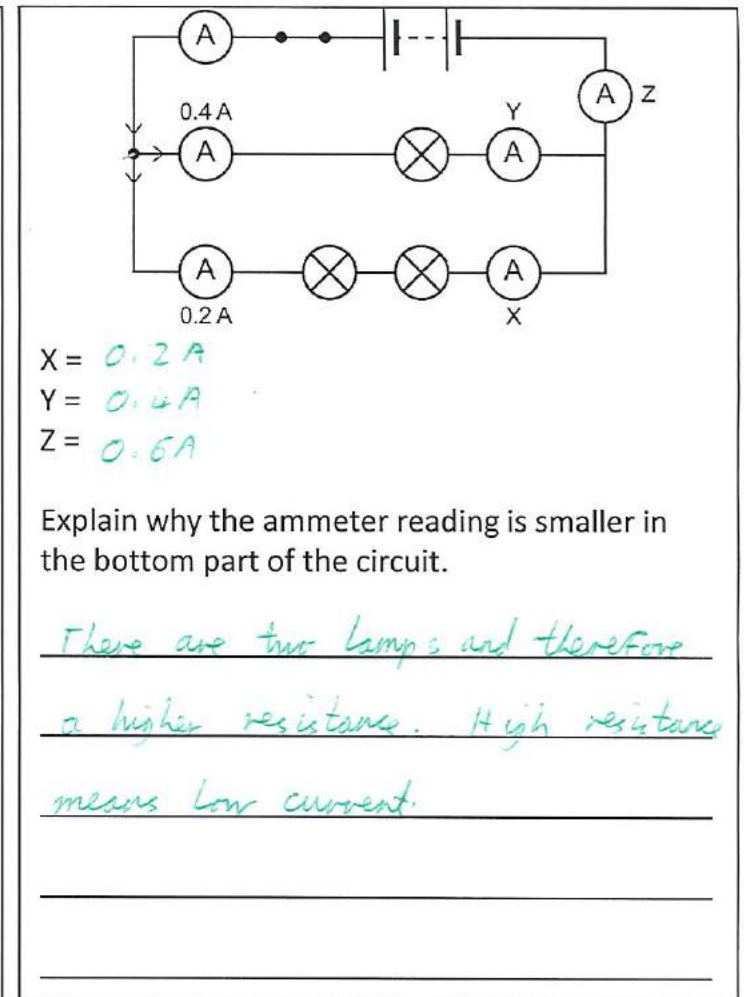 A
A Z
0.4 A Y
A A
A A
0.2 A X
X = 0.2 A
Y = 0.4 A
Z = 0.6 A
Explain why the ammeter reading is smaller in
the bottom part of the circuit.
There are two lamps and therefore
a higher resistance. High resistance
means low current.